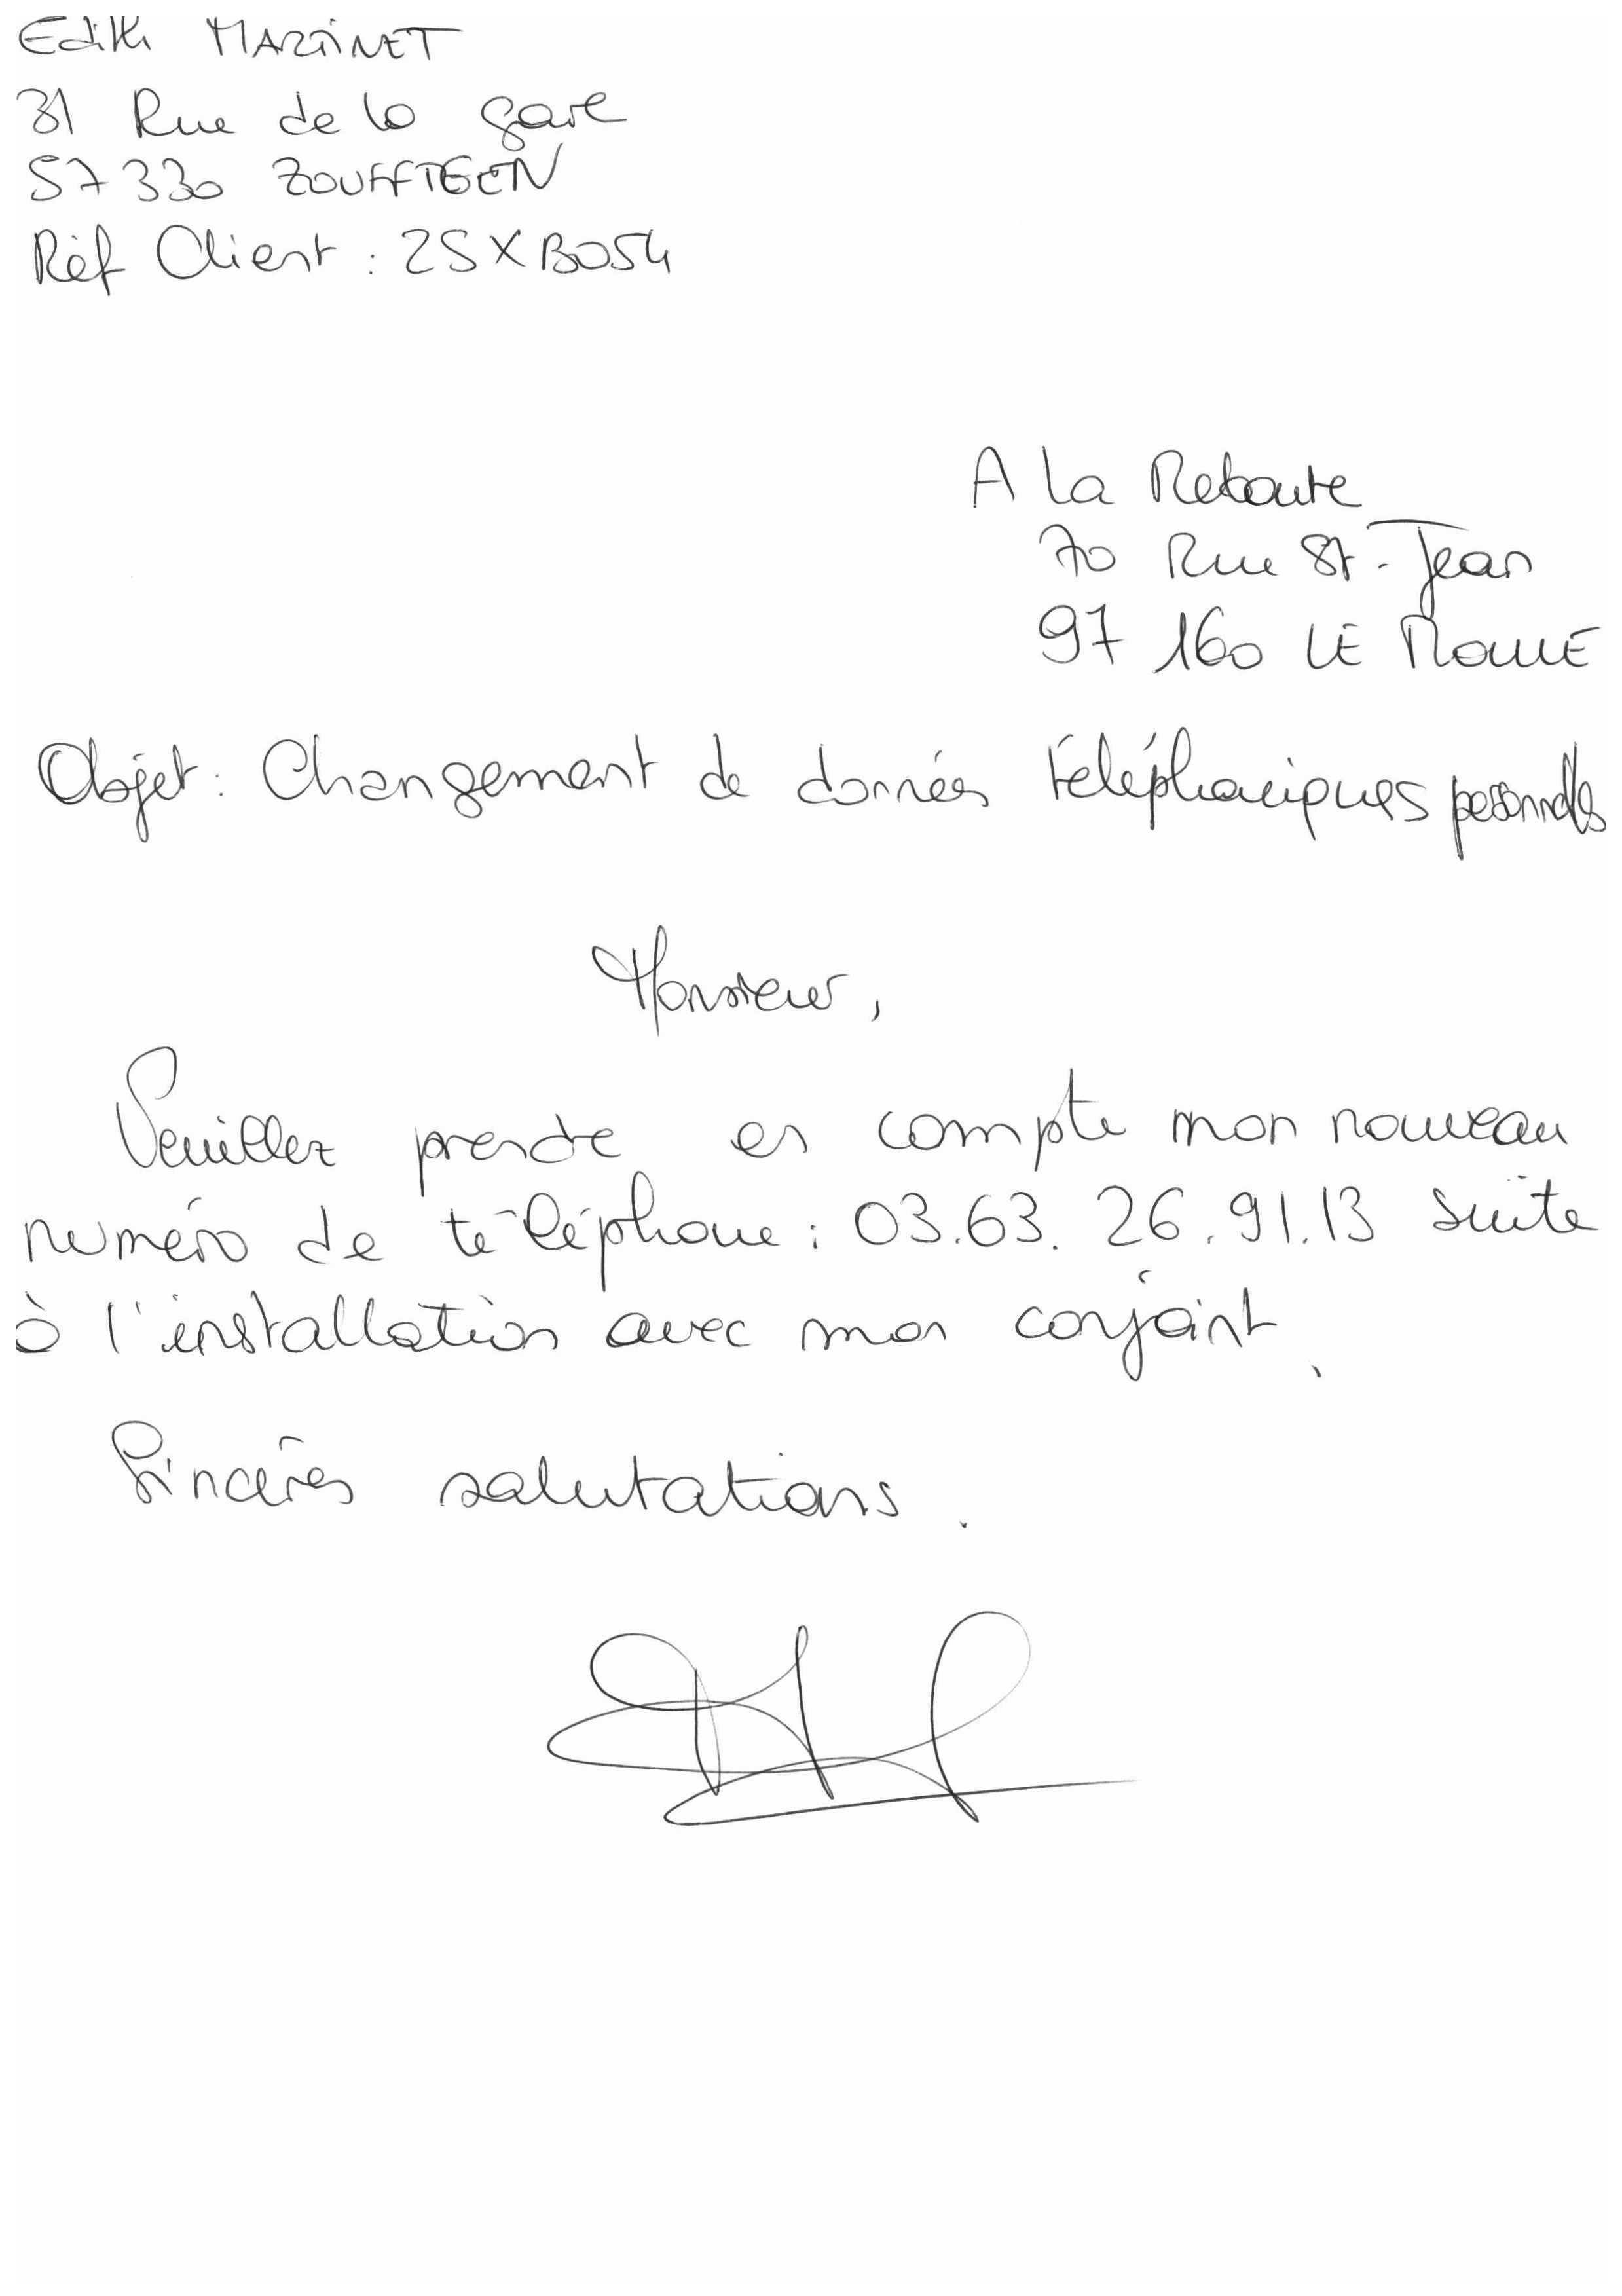 Edith MARTINET
31 Rue de la gare
57330 ZOUFFTGEN
Réf Client : 2SXBO54
A la Redoute
70 Rue St-Jean
97 160 LE MOULE
Objet : Changement de données téléphoniques personnelles
Monsieur,
Veuillez prendre en compte mon nouveau
numéro de téléphone : 03.63.26.91.13 suite
à l'installation avec mon conjoint.
Sincères salutations.